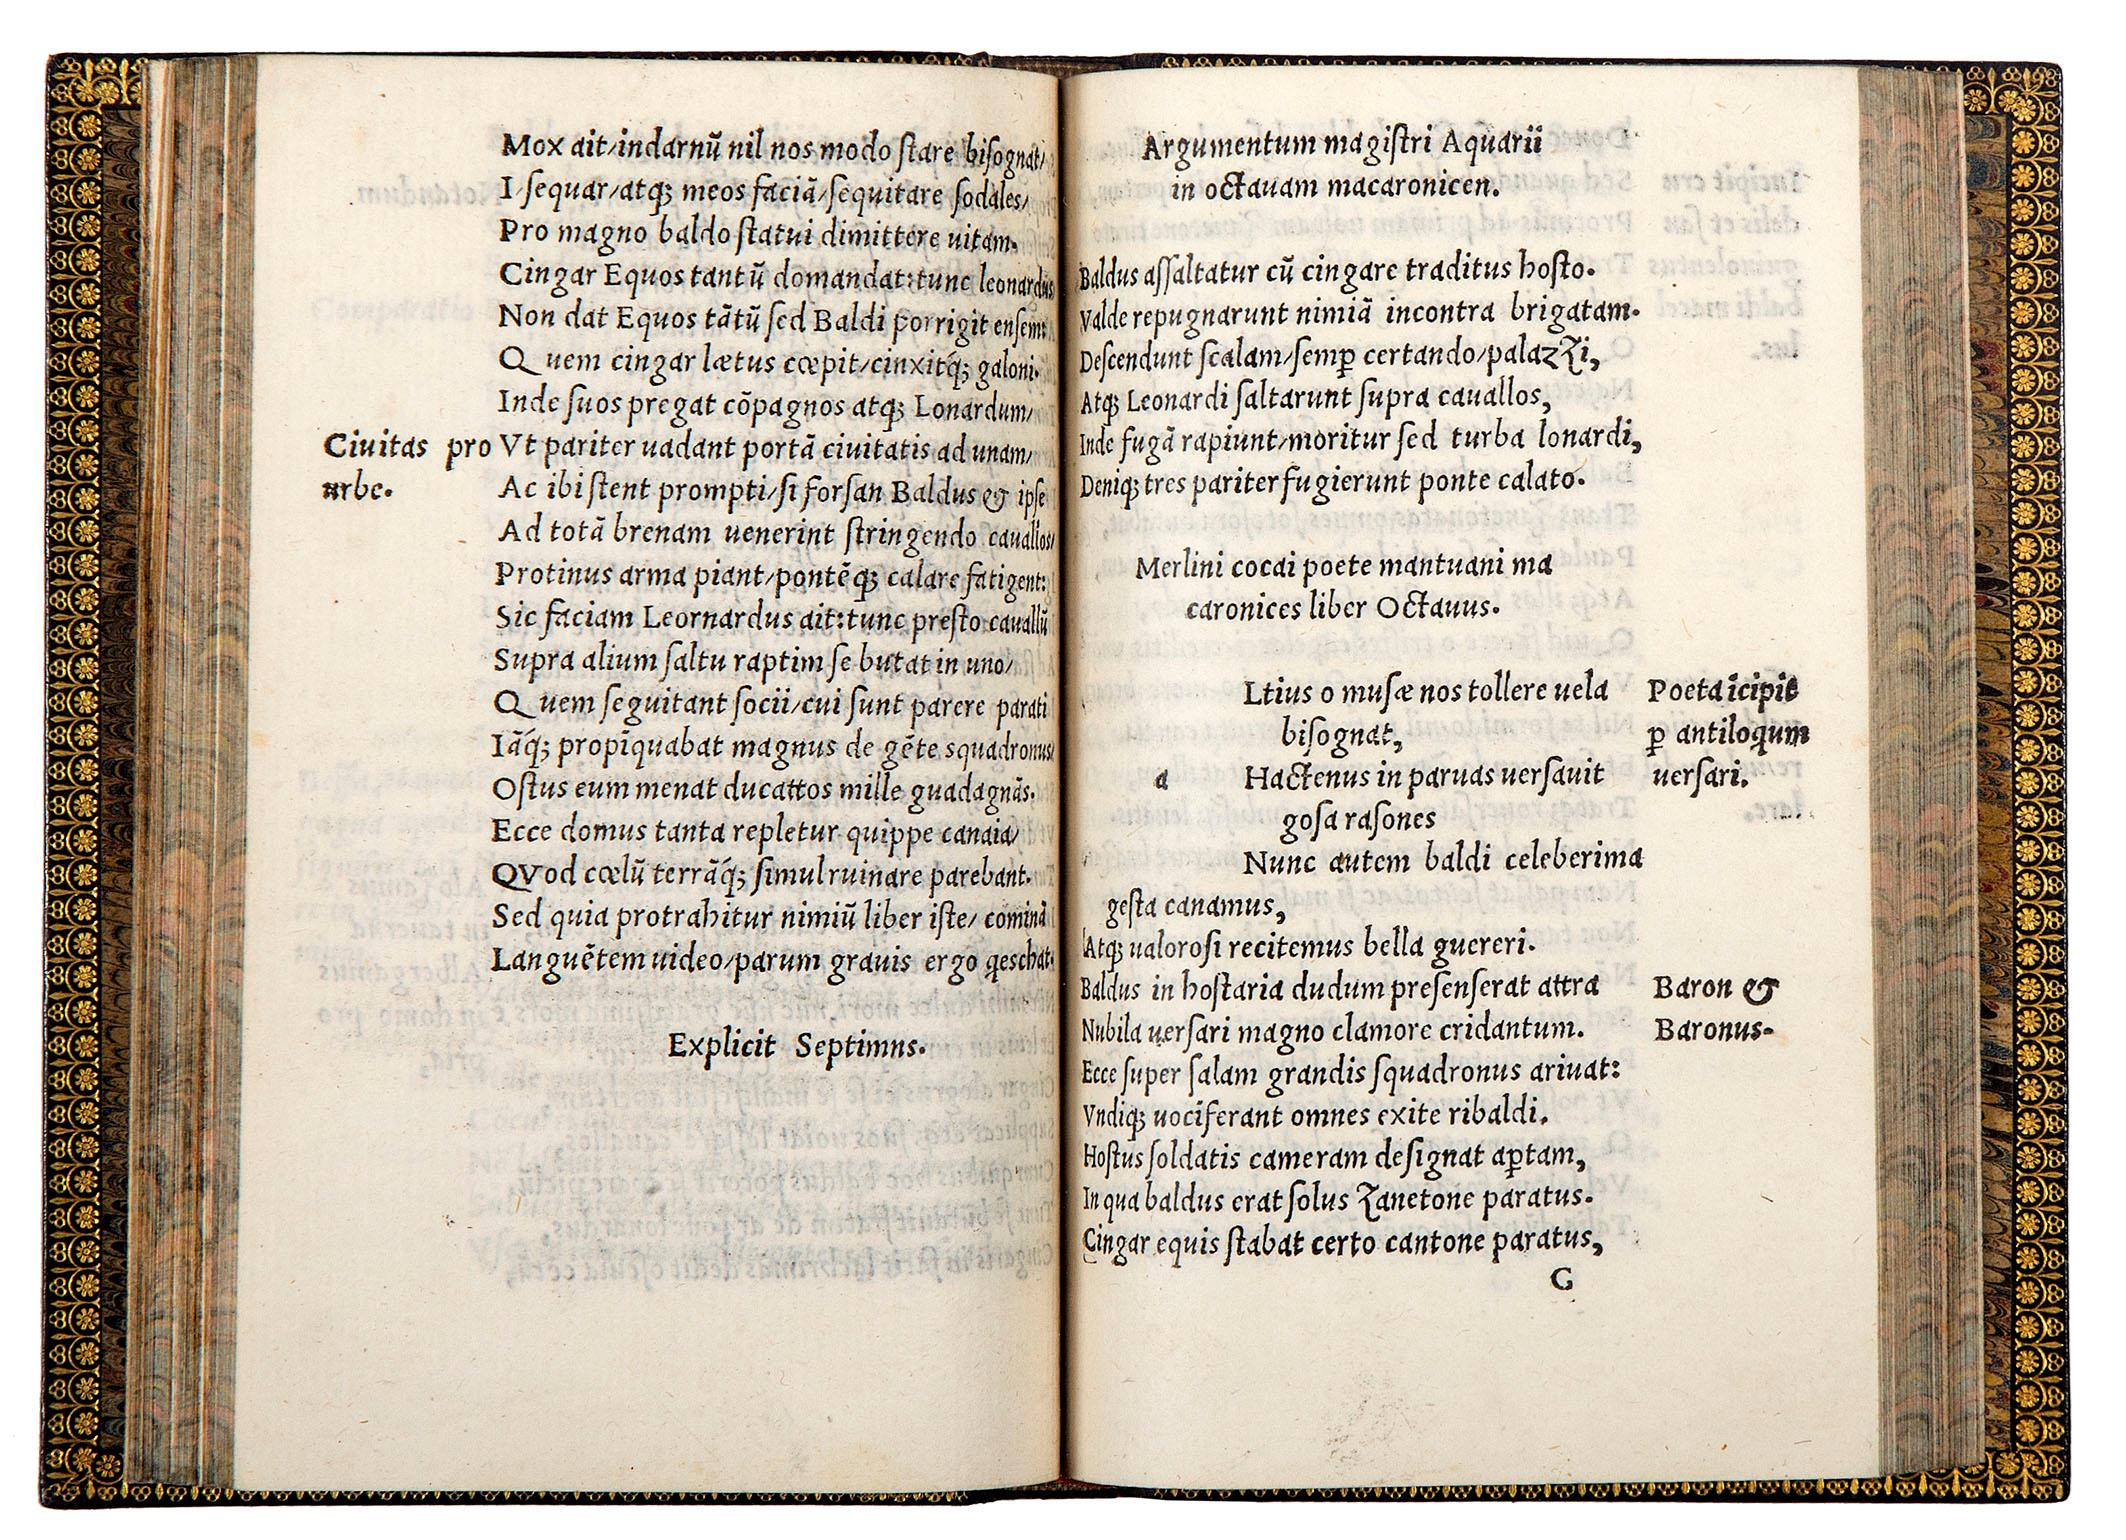 Mox ait/indarnū nil nos modo ſtare biſognat/
I/ſequar/atq; meos faciā/ſequitare ſodales/
Pro magno baldo ſtatui dimittere uitam.
Cingar Equos tantū domandat:tunc leonardus
Non dat Equos tātū ſed Baldi porrigit enſem:
Quem cingar lætus cœpit/cinxitq́; galoni.
Inde ſuos pregat cōpagnos atq; Lonardum/
Ciuitas pro
urbe.
Vt pariter uadant portā ciuitatis ad unam/
Ac ibi ſtent prompti/ſi forſan Baldus & ipſe
Ad totā brenam uenerint ſtringendo cauallos/
Protinus arma piant/pontēq; calare fatigent:
Sic faciam Leornardus ait:tunc preſto cauallū
Supra alium ſaltu raptim ſe butat in uno/
Quem ſeguitant ſocii/cui ſunt parere parati
Iāq́; propīquabat magnus de gēte squadronus/
Oſtus eum menat ducattos mille guadagnās.
Ecce domus tanta repletur quippe canaia/
QVod cœlū terrāq́; ſimul ruinare parebant.
Sed quia protrahitur nimiū liber iſte/ cominā
Languētem uideo/parum grauis ergo qeſchat.
Explicit Septimns.
Argumentum magiſtri Aquarii
in octauam macaronicen.
Baldus aſſaltatur cū cingare traditus hoſto.
Valde repugnarunt nimiā incontra brigatam.
Deſcendunt ſcalam/ſemꝑ certando/palazzi,
Atq; Leonardi ſaltarunt ſupra cauallos,
Inde fugā rapiunt/moritur ſed turba lonardi,
Deniq; tres pariter fugierunt ponte calato.
Merlini cocai poete mantuani ma
caronices liber Octauus.
Ltius o muſæ nos tollere uela
biſognat,
a Hactenus in paruas uerſauit
goſa raſones
Nunc autem baldi celeberima
geſta canamus,
Poeta īcipit
ꝑ antiloqum
uerſari.
Atq; ualoroſi recitemus bella guereri.
Baldus in hoſtaria dudum preſenſerat attra
Nubila uerſari magno clamore cridantum.
Baron &
Baronus.
Ecce ſuper ſalam grandis ſquadronus ariuat:
Vndiq; uociferant omnes exite ribaldi.
Hoſtus ſoldatis cameram deſignat aꝑtam,
In qua baldus erat ſolus Zanetone paratus.
Cingar equis ſtabat certo cantone paratus,
G